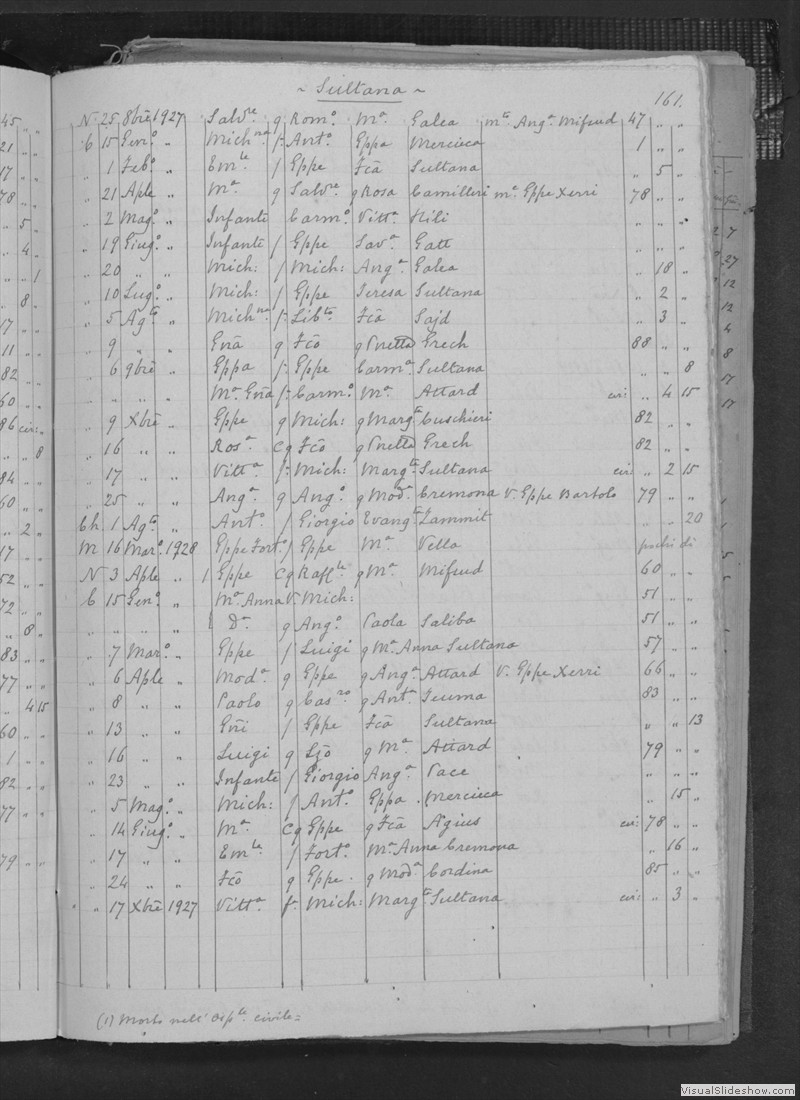 ~ Sultana ~
161.
N 25 8bre 1927 Salvre g Romo. Ma. Galea ma Anga. Mifsud 47 „ „
6 15 Geno. „ Michna f. Anto. Gppa Mercieca 1 „ „
„ 1 Febo. „ Emle f Gppe Fca Sultana „ 5 „
„ 21 Aple „ Ma. g Salvre g Rosa Camilleri ma Gppe Xerri 78 „ „
„ 2 Mago. „ Infante Carmo. Vitta. Hili
„ 19 Giugo. „ Infante f Gppe Sava Gatt „ „ „
„ 20 „ „ Mich: f Mich: Anga. Galea „ 18 „
„ 10 Lugo. „ Mich: f Gppe Teresa Sultana „ 2 „
„ 5 Agto „ Michna f. Libto Fca Sajd „ 3 „
„ 9 „ „ Gna g Fco g Pnetta Grech 88 „ „
„ 6 9bre „ Gppa f. Gppe Carma. Sultana „ „ 8
„ „ „ „ Ma. Gna f. Carmo. Ma. Attard cir: „ 4 15
„ 9 Xbre „ Gppe g Mich: g Margta Buschieri 82 „ „
„ 16 „ „ Rosa Cg Fco g Pnetta Grech 82 „ „
„ 17 „ „ Vitta f. Mich: Margta. Sultana cir: „ 2 15
„ 25 „ „ Anga. g Ango. g Moda. Cremona V. Gppe Bartolo 79 „ „
Ch. 1 Agto „ Anto. f Giorgio Evangta Zammit „ „ 20
M 16 Maro. 1928 Gppe Forto. f Gppe Ma. Vella pochi di
N 3 Aple „ 1 Gppe Cg Rafle g Ma. Mifsud 60 „ „
6 15 Geno. „ Ma. Anna V. Mich: 51 „ „
„ „ „ „ Da. g Ango. Paola Saliba 51 „ „
„ 7 Maro. „ Gppe f Luigi g Ma. Anna Sultana 57 „ „
„ 6 Aple „ Moda. g Gppe g Anga. Attard V. Gppe Xerri 66 „ „
„ 8 „ „ Paolo g Casro g Anta. Teuma 83 „ „
„ 13 „ „ Gni f Gppe Fca Sultana „ „ 13
„ 16 „ „ Luigi g Ljo g Ma. Attard 79 „ „
„ 23 „ „ Infante f Giorgio Anga. Pace „ „ „
„ 5 Mago. „ Mich: f Anto. Gppa. Mercieca „ 15 „
„ 14 Giugo. „ Ma. Cg Gppe g Fca Agius cir: 78 „ „
„ 17 „ „ Emle f Forto. Ma. Anna Cremona „ 16 „
„ 24 „ „ Fco g Gppe. g Moda. Cordina 85 „ „
„ 17 Xbre 1927 Vitta. f. Mich: Margta Sultana cir: „ 3 „
(1) Morto nell' Osple. civile =
VisualSlideshow.com